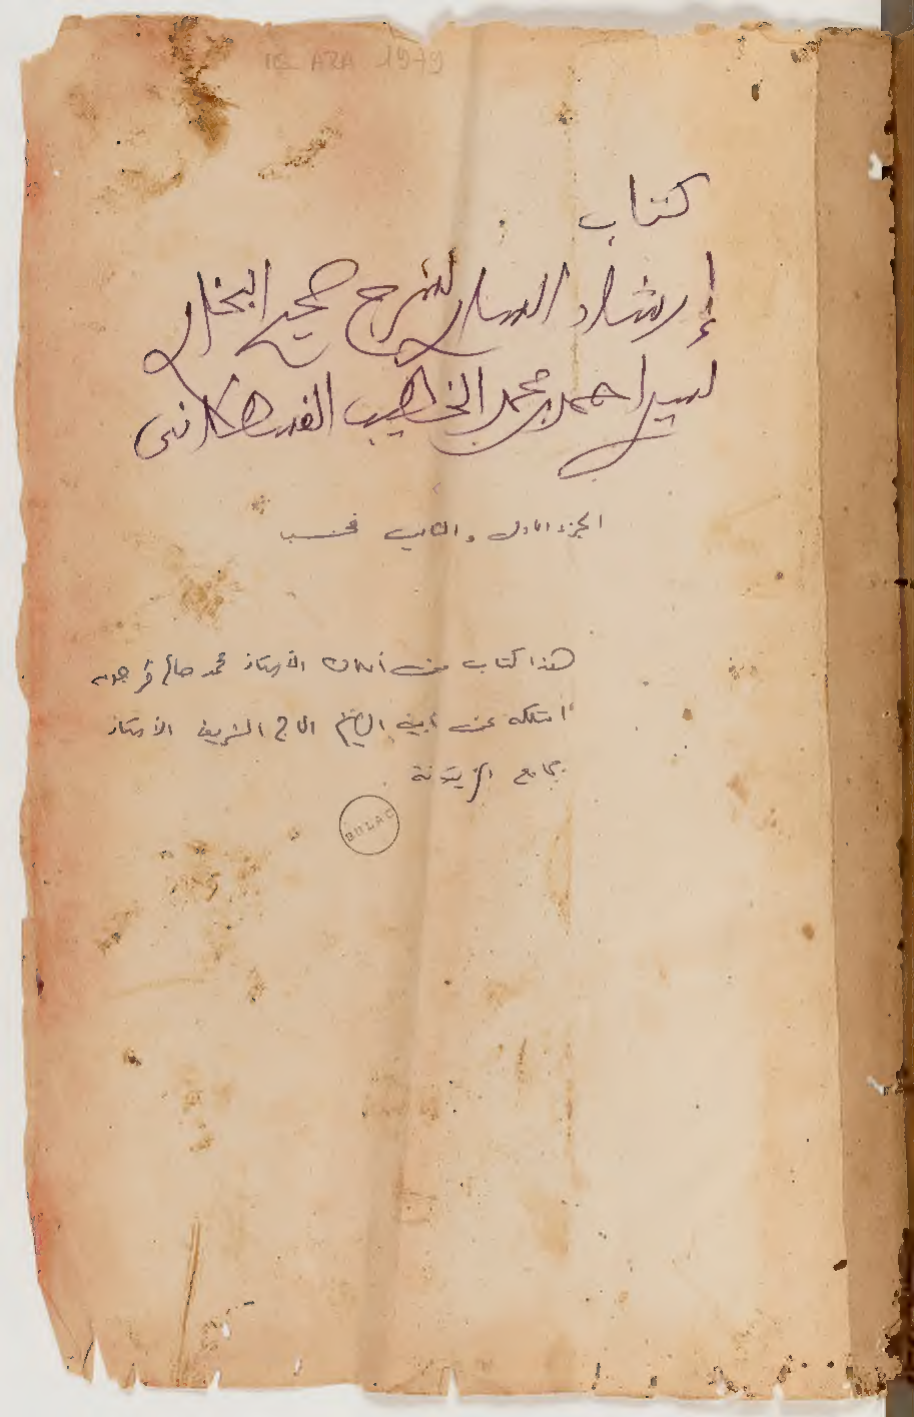 MS ARA 1979
كتاب
إرشاد الساري لشرح صحيح البخاري
لسيدي احمد بن محمد الخطيب القسطلاني
الجزء الاول والثاني فحسب
هذا كتاب من أملاك الأستاذ محمد صالح
امتلكه عن أبيه الشيخ الحاج الشريف الأستاذ
بجامع الزيتونة
BULAC